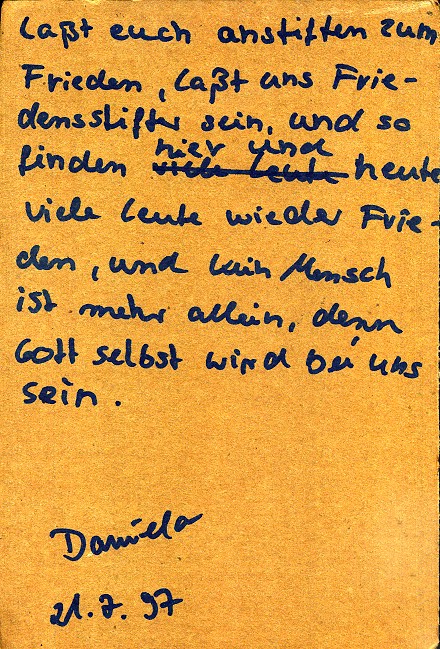 Laßt euch anstiften zum
Frieden, laßt uns Frie-
densstifter sein, und so
finden hier und heute
viele Leute wieder Frie-
den, und kein Mensch
ist mehr allein, denn
Gott selbst wird bei uns
sein.
Daniela
21.7.97